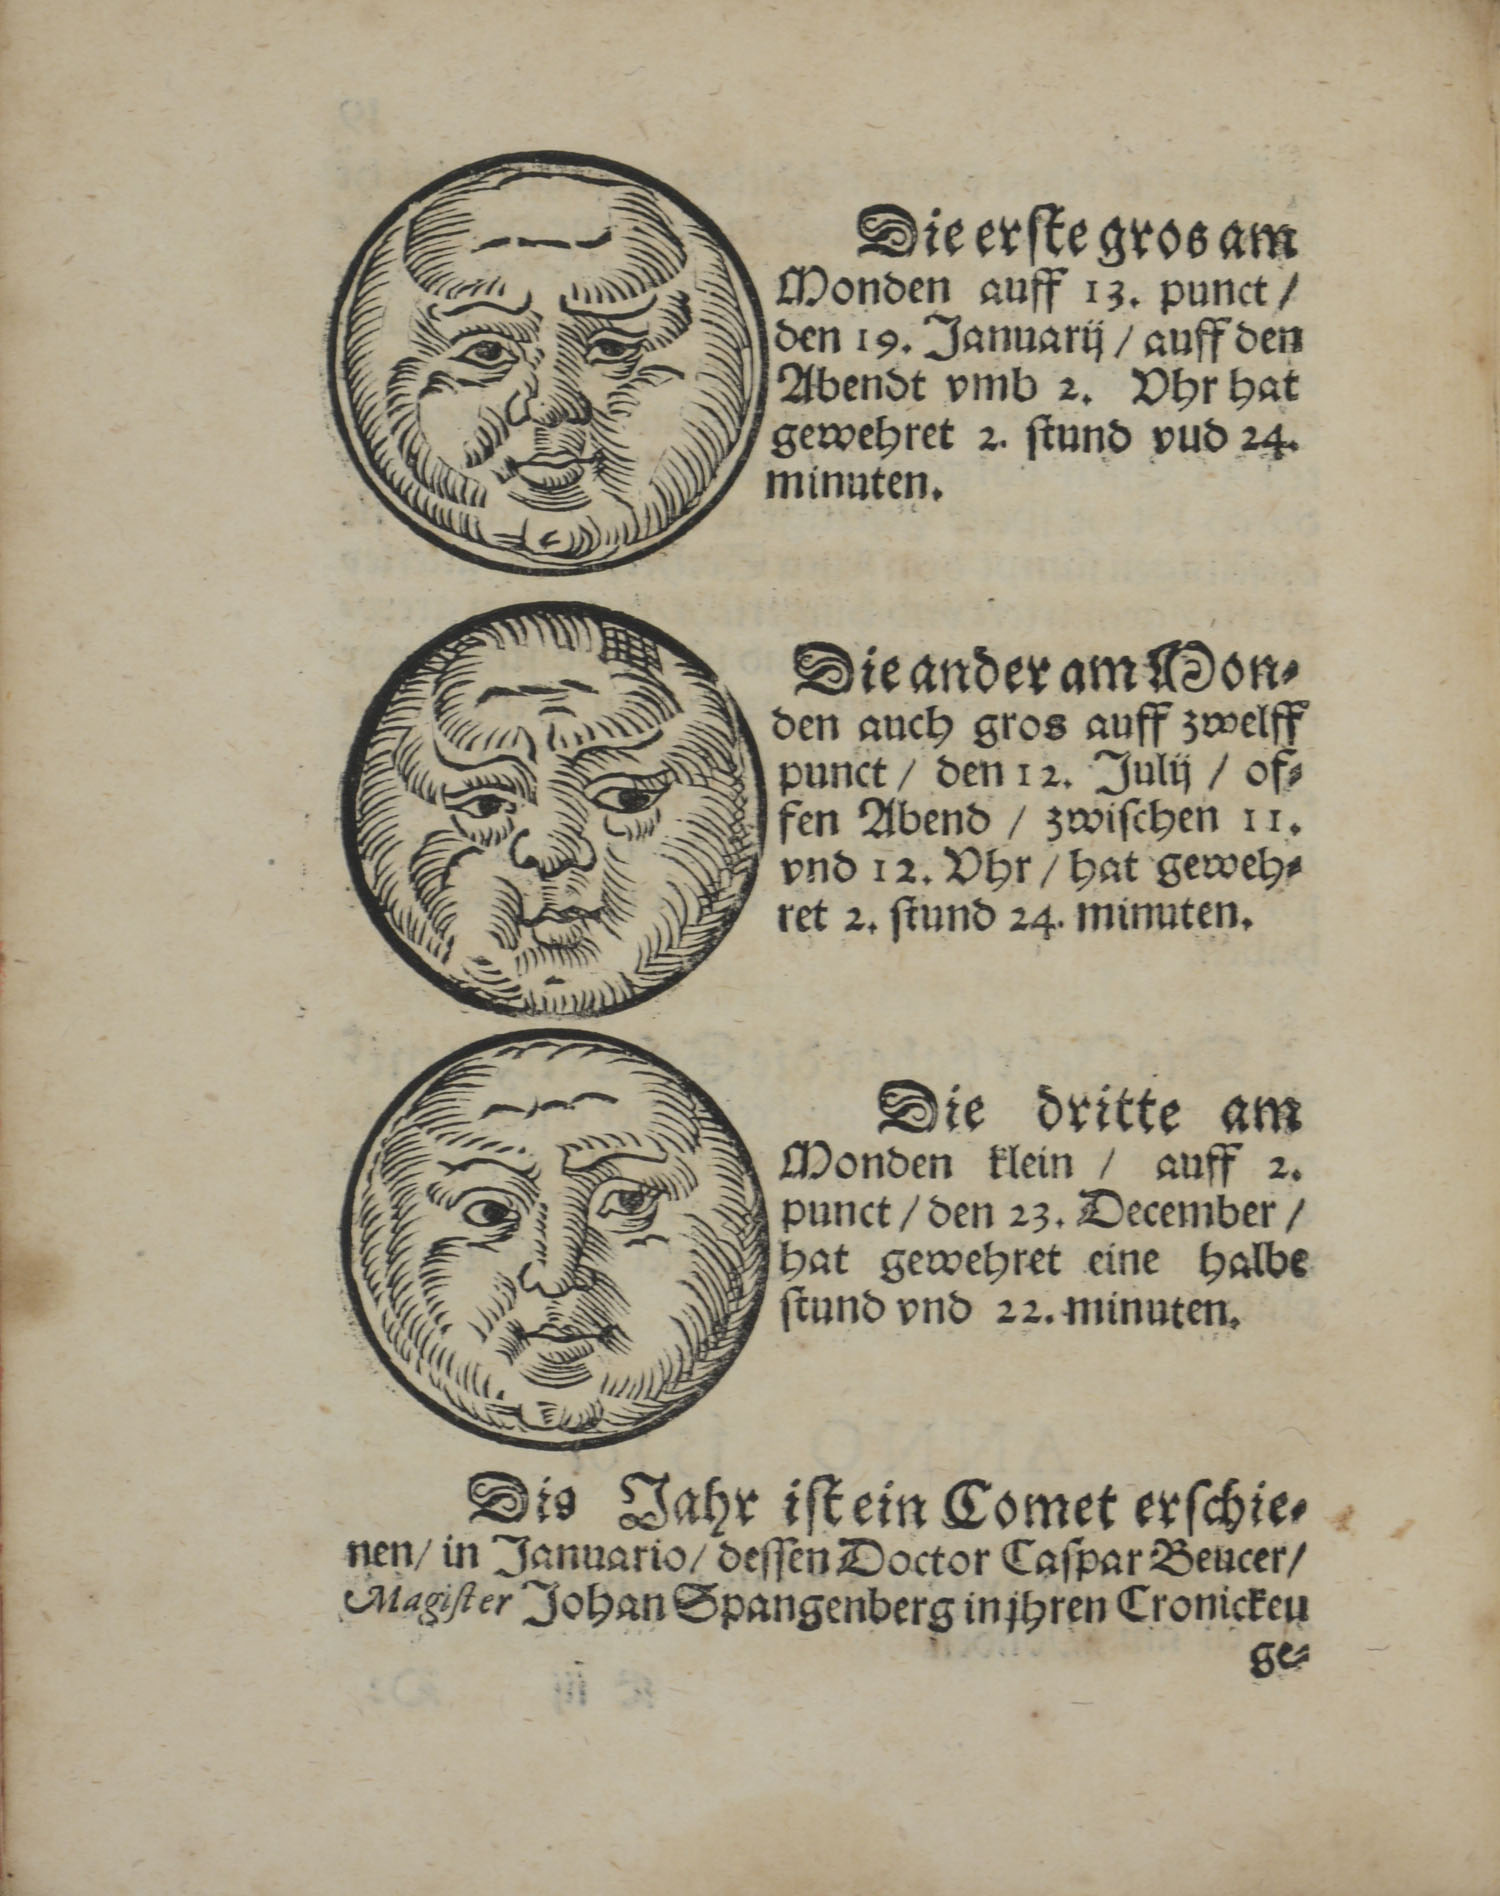 Die erste gros am
Monden auff 13. punct /
den 19. Januarij / auff den
Abendt vmb 2. Vhr hat
gewehret 2. stund vud 24.
minuten.
Die ander am Mon-
den auch gros auff zwelff
punct / den 12. Julij / of-
fen Abend / zwischen 11.
vnd 12. Vhr / hat geweh-
ret 2. stund 24. minuten.
Die dritte am
Monden klein / auff 2.
punct / den 23. December /
hat gewehret eine halbe
stund vnd 22. minuten.
Dis Jahr ist ein Comet erschie-
nen / in Januario / dessen Doctor Caspar Beucer /
Magister Johan Spangenberg in jhren Cronickeu
ge-